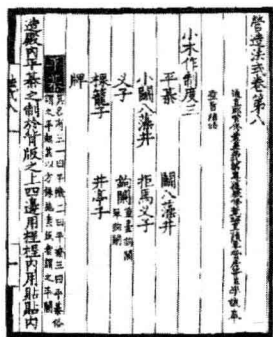 營造法式卷第八
通直郎管修蓋皇弟外第專一提舉修蓋班直諸軍營房等臣李誡奉
聖旨編修
小木作制度三
平棊
鬬八藻井
小鬬八藻井
拒馬叉子
叉子
鉤闌 重臺鉤闌 單鉤闌
棵籠子
井亭子
牌
平棊 其名有三一曰平機二曰平橑三曰平棊俗
謂之平起其以方椽施素版者謂之平闇
造殿内平棊之制於背版之上四邊用桯桯内用貼貼内